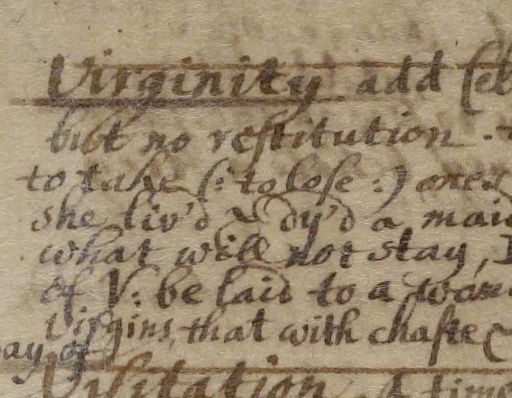 Virginity add
but no restitution.
to take (: to lose :) ones
she liv'd & dy'd a maid
what will not stay,
of V: be laid to a
Virgins, that with chaste
day of
Visitation. A time